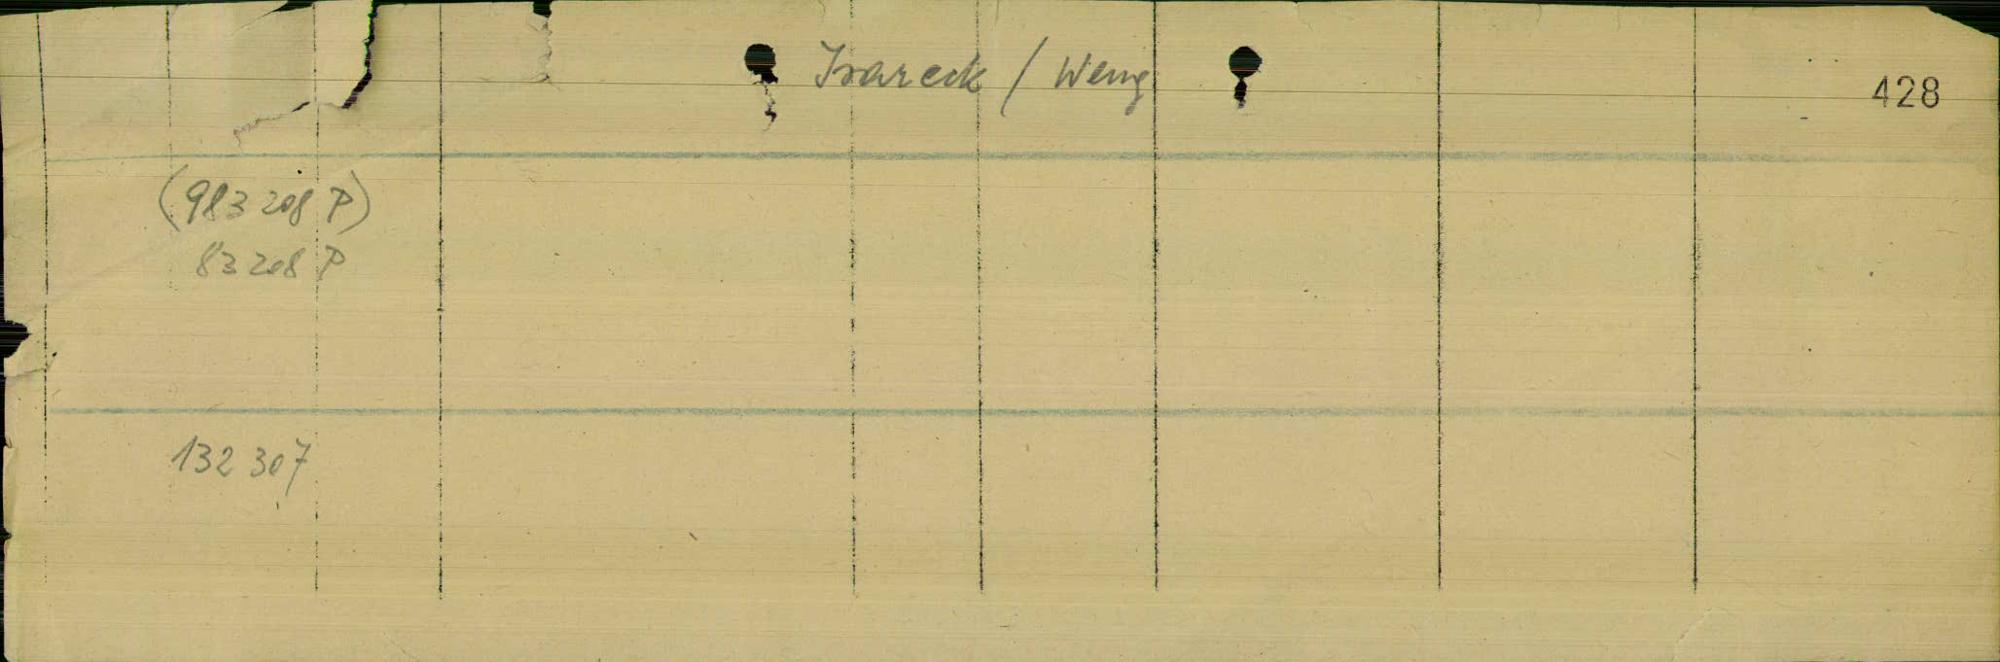 Isareck / Weng
428
(983 208 P)
83 208 P
132 307